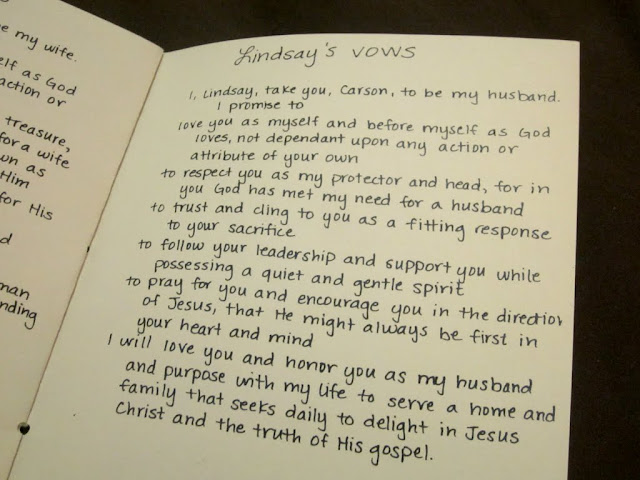 e my wife.
elf as God
action or
treasure,
for a wife
wn as
Him
for His
d
man
nding
Lindsay's VOWS
I, Lindsay, take you, Carson, to be my husband.
I promise to
love you as myself and before myself as God
loves, not dependant upon any action or
attribute of your own
to respect you as my protector and head, for in
you God has met my need for a husband
to trust and cling to you as a fitting response
to your sacrifice
to follow your leadership and support you while
possessing a quiet and gentle spirit
to pray for you and encourage you in the direction
of Jesus, that He might always be first in
your heart and mind
I will love you and honor you as my husband
and purpose with my life to serve a home and
family that seeks daily to delight in Jesus
Christ and the truth of His gospel.